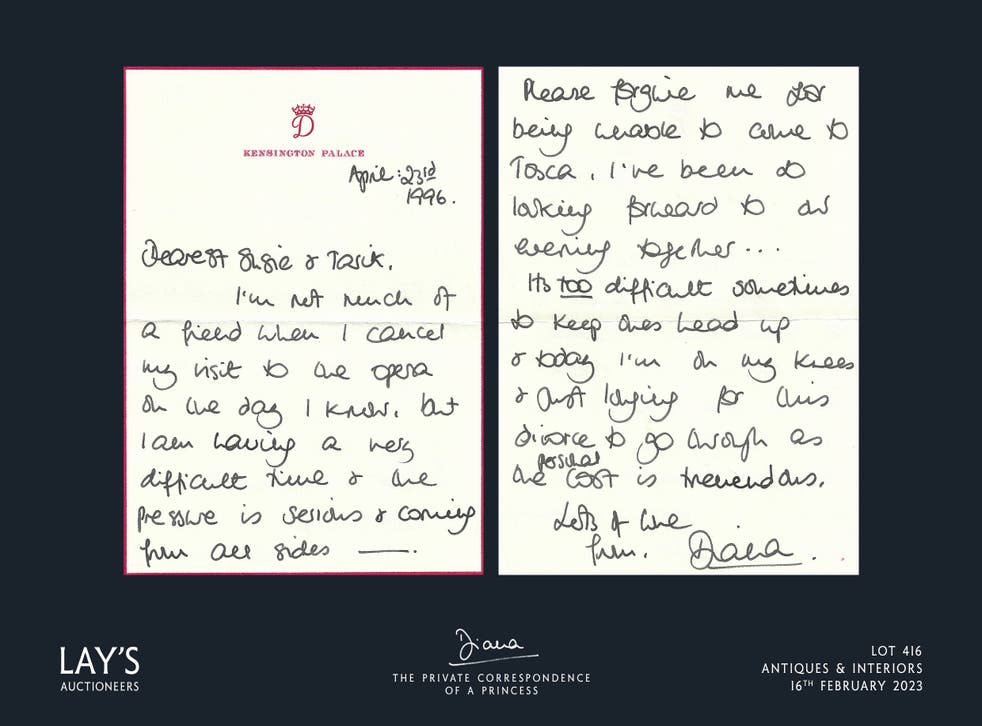 D
KENSINGTON PALACE
April: 23rd
1996.
Dearest Susie & Tarik.
I'm not much of
a friend when I cancel
my visit to the opera
on the day I know. but
I am having a very
difficult time & the
pressure is serious & coming
from all sides —.
Please forgive me for
being unable to come to
Tosca. I've been so
looking forward to our
evening together...
Its too difficult sometimes
to keep ones head up
& today I'm on my knees
& just longing for this
divorce to go through as
the personal cost is tremendous.
Lots of love
from. Diana.
LAY'S
AUCTIONEERS
Diana
THE PRIVATE CORRESPONDENCE
OF A PRINCESS
LOT 416
ANTIQUES & INTERIORS
16TH FEBRUARY 2023